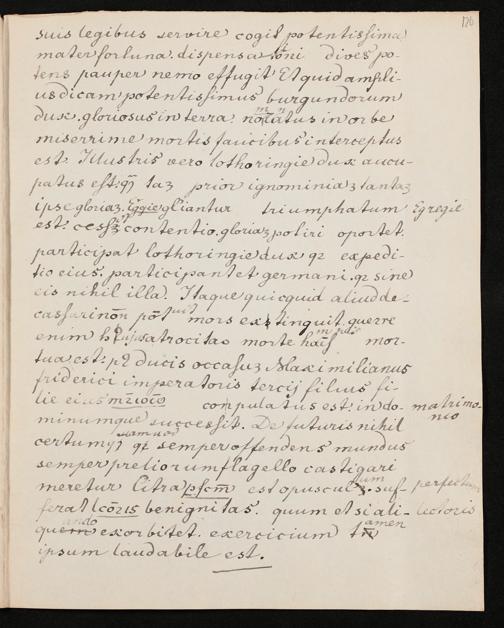 126
suis legibus servire cogit potentissima
mater fortuna. dispensatōni dives po-
tens pauper nemo effugit Et quid ampli-
us dicam potentissimus burgundorum
dux. gloriosus in terra. notatus in orbe
miserrime mortis faucibus interceptus
est. Illustris vero lothoringie dux aucu-
patus est: prior ignominiaʒ tantaʒ
ipse gloriaʒ. triumphatum Egregie
est. contentio. gloriaʒ poliri oportet.
participat lothoringie dux qꝫ expedi-
tio eius. participantet germani. qꝫ sine
eis nihil illa. Itaque quicquid aliud de-
mors extinguit. querre
enim atrocitas morte mor-
tua est: ducis occasuʒ Maximilianus
friderici imperatoris tercij filius fi-
lie eius computatus est: in do- matrimo-
nio
minumque successit. De futuris nihil
certum semper offendens mundus
semper preliorum flagello castigari
meretur Citra pſcm̄ est opuscul suf- perfectum
ferat lcōris benignitas. quum et si ali- lectoris
exorbitet. exercicium tn̄ amen
ipsum laudabile est.